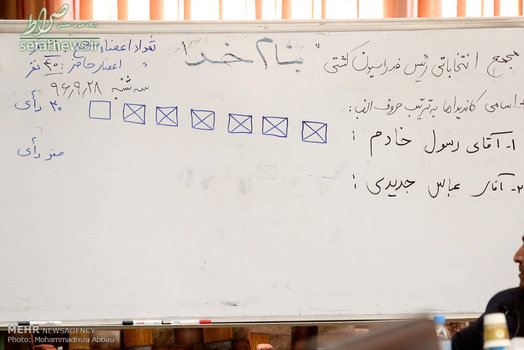 بنام خدا
مجمع انتخاباتی رئیس فدراسیون کشتی
تعداد اعضاء
اعضاء حاضر: ۴۰ نفر
سه شنبه ۹۶,۹,۲۸
اسامی کاندیداها به ترتیب حروف الفبا:
۱- آقای رسول خادم :
۴۰ رأی
۲- آقای عباس جدیدی :
صفر رأی
صراط
seratnews.ir
MEHR NEWSAGENCY
Photo: Mohammadreza Abbasi